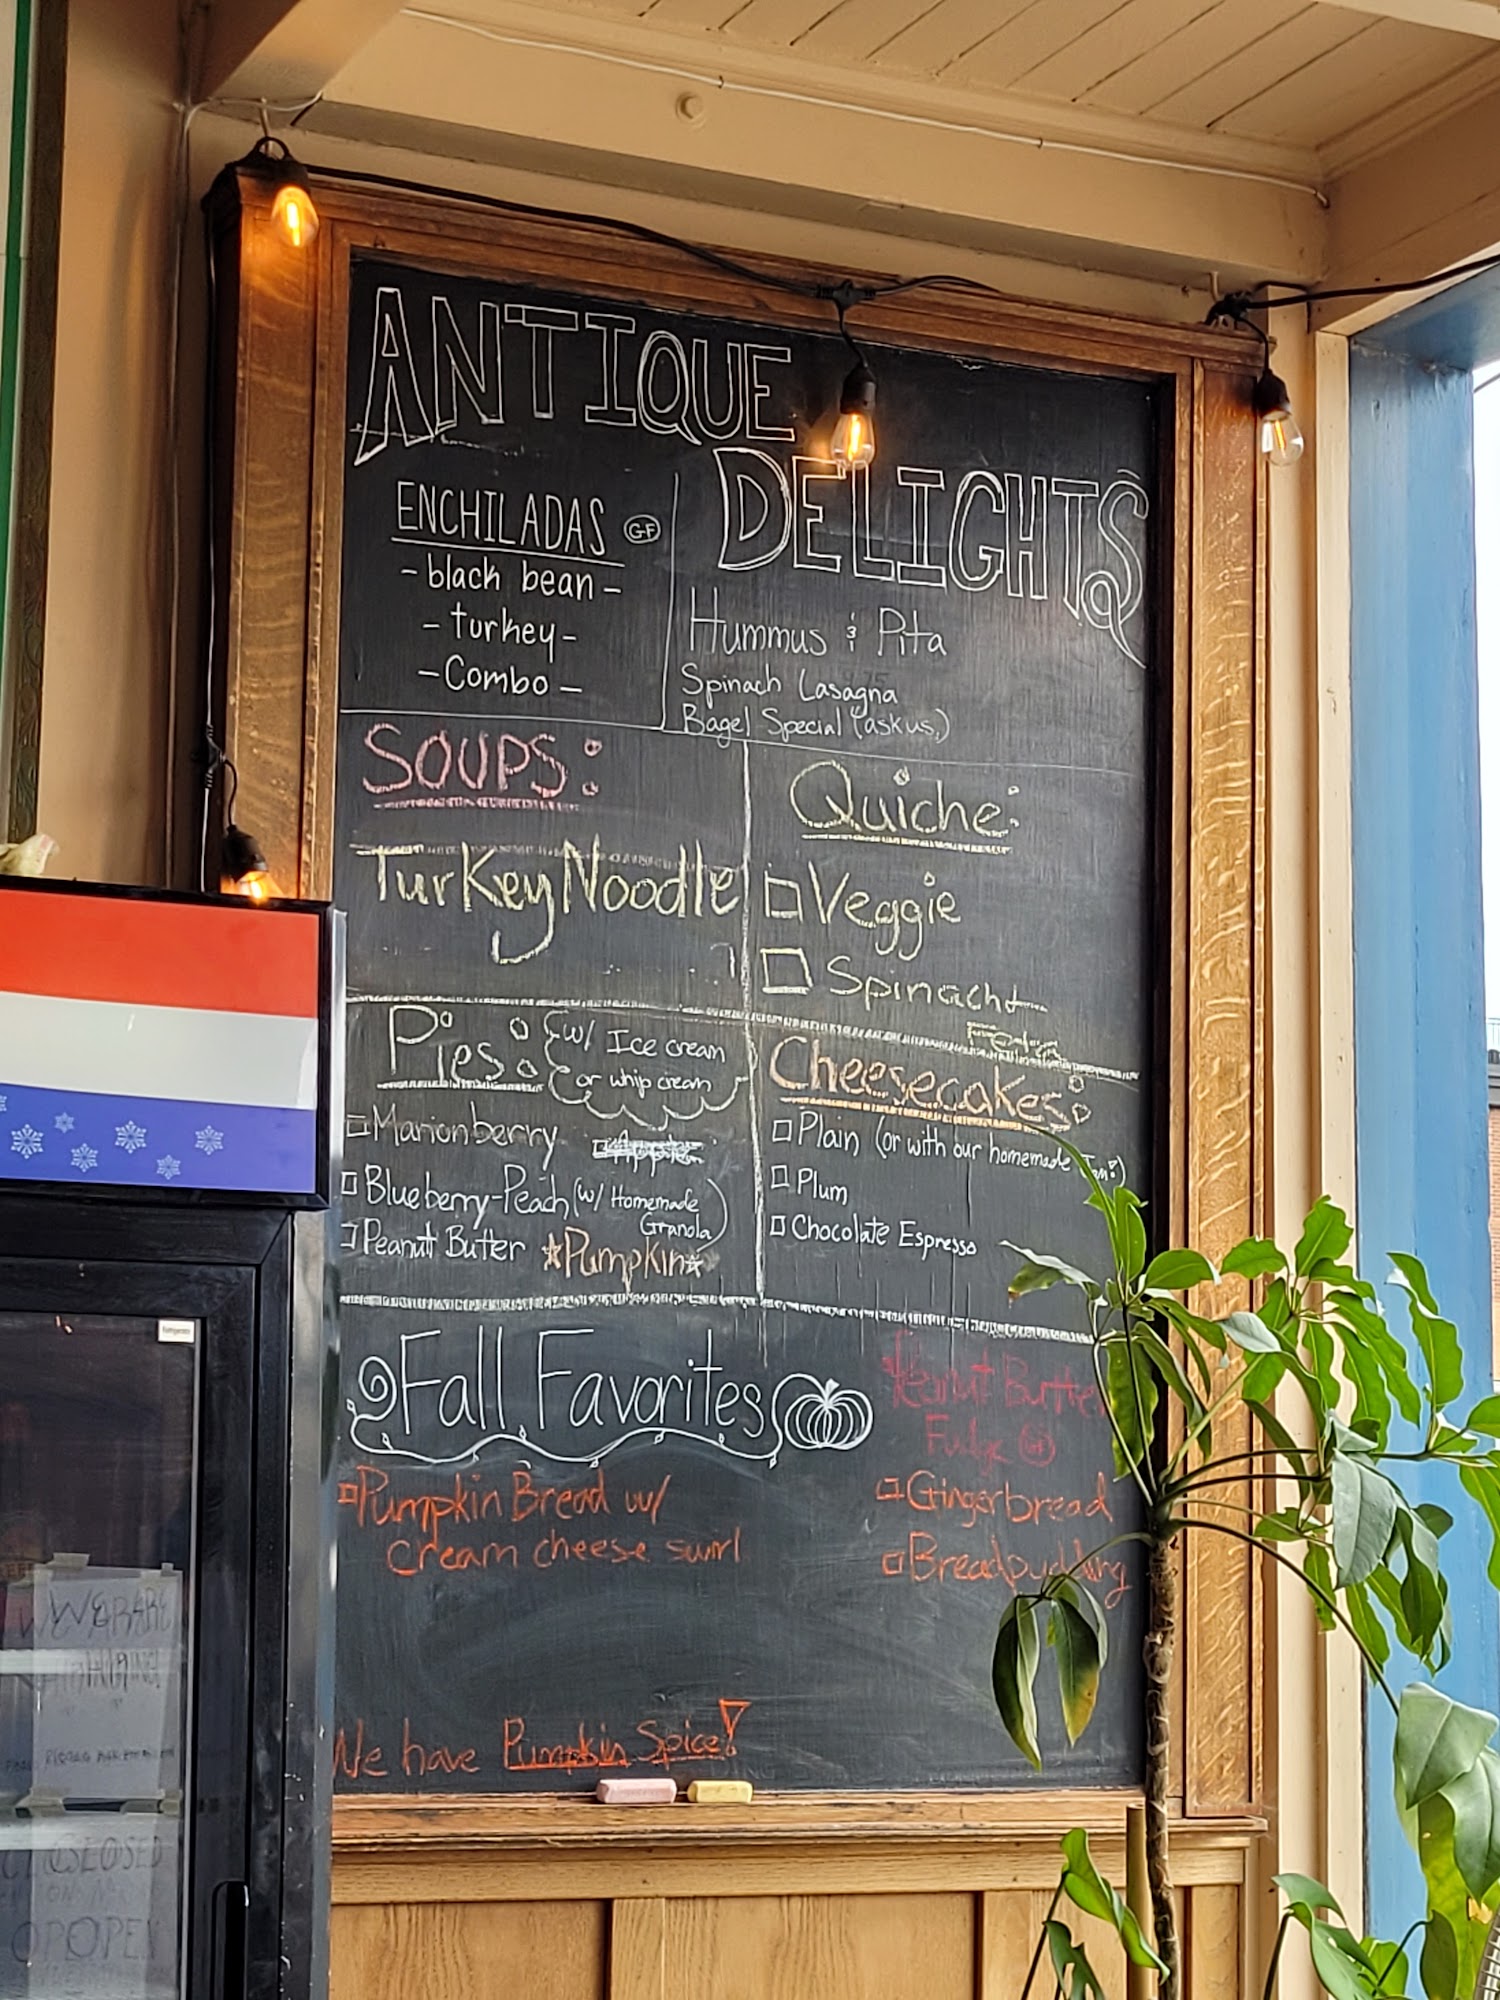 ANTIQUE
DELIGHTS
ENCHILADAS GF
- black bean -
- turkey -
- Combo -
Hummus & Pita
Spinach Lasagna
Bagel Special (ask us,)
SOUPS:
Turkey Noodle
Quiche:
Veggie
Spinach +
Feta
Pies: w/ Ice cream
or whip cream
Marionberry Apple
Blueberry-Peach (w/ Homemade
Granola)
Peanut Butter ☆Pumpkin☆
Cheesecakes:
Plain (or with our homemade Jam!)
Plum
Chocolate Espresso
Fall Favorites
Pumpkin Bread w/
Cream cheese swirl
Peanut Butter
Fudge GF
Gingerbread
Breadpudding
We have Pumpkin Spice!
WE ARE
HIRING!
CLOSED
OPEN